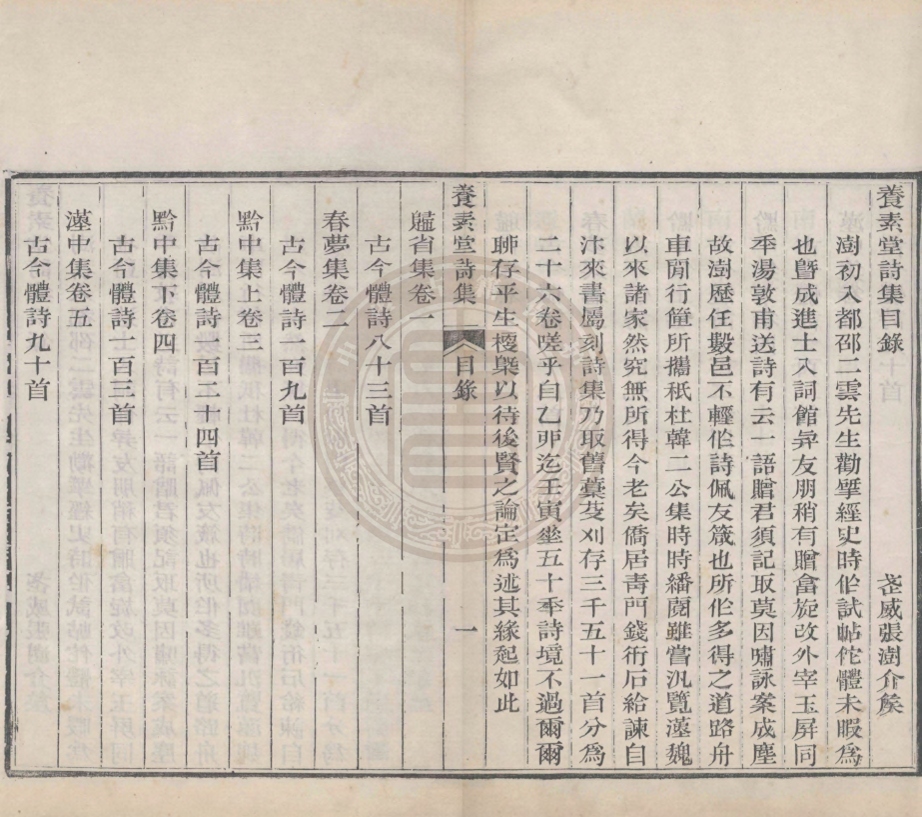 養素堂詩集目錄
武威張澍介矦
澍初入都邵二雲先生勸揅經史時作試帖佗體未暇為
也暨成進士入詞館㒷友朋稍有贈畣旋改外宰玉屏同
秊湯敦甫送詩有云一語贈君須記取莫因嘯詠案成塵
故澍歷任數邑不輕作詩佩友箴也所作多得之道路舟
車閒行篋所攜秖杜韓二公集時時繙閱雖嘗汎覽漢魏
以來諸家然究無所得今老矣僑居靑門錢衎石給諫自
汴來書屬刻詩集乃取舊藁芟刈存三千五十一首分為
二十六卷嗟乎自乙丣迄壬寅垂五十秊詩境不過爾爾
聊存平生櫌槩以待後賢之論定為述其緣起如此
養素堂詩集 目錄 一
尷省集卷一
古今體詩八十三首
春夢集卷二
古今體詩一百九首
黔中集上卷三
古今體詩一百二十四首
黔中集下卷四
古今體詩一百三首
漢中集卷五
古今體詩九十首